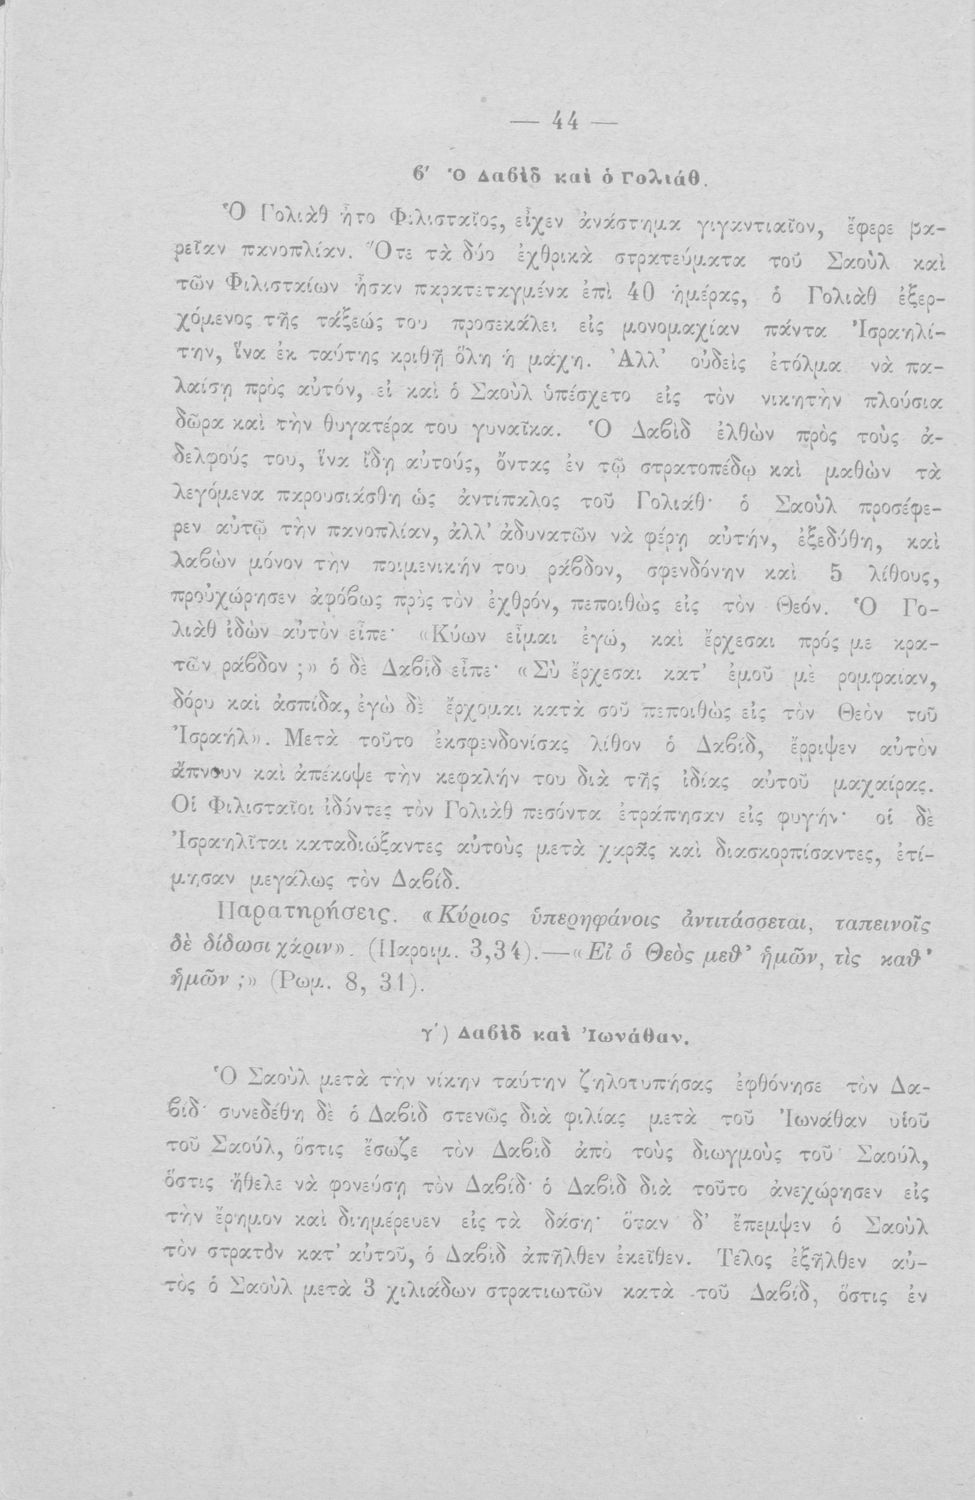 — 44 —
β′ Ὁ Δαβὶδ καὶ ὁ Γολιάθ.
Ὁ Γολιὰθ ἦτο Φιλισταῖος, εἶχεν ἀνάστημα γιγαντιαῖον, ἔφερε βα-
ρεῖαν πανοπλίαν. Ὅτε τὰ δύο ἐχθρικὰ στρατεύματα τοῦ Σαοὺλ καὶ
τῶν Φιλισταίων ἦσαν παρατεταγμένα ἐπὶ 40 ἡμέρας, ὁ Γολιὰθ ἐξερ-
χόμενος τῆς τάξεώς του προσεκάλει εἰς μονομαχίαν πάντα Ἰσραηλί-
την, ἵνα ἐκ ταύτης κριθῇ ὅλη ἡ μάχη. Ἀλλ' οὐδεὶς ἐτόλμα νὰ πα-
λαίσῃ πρὸς αὐτόν, εἰ καὶ ὁ Σαοὺλ ὑπέσχετο εἰς τὸν νικητὴν πλούσια
δῶρα καὶ τὴν θυγατέρα του γυναῖκα. Ὁ Δαβὶδ ἐλθὼν πρὸς τοὺς ἀ-
δελφούς του, ἵνα ἴδῃ αὐτούς, ὄντας ἐν τῷ στρατοπέδῳ καὶ μαθὼν τὰ
λεγόμενα παρουσιάσθη ὡς ἀντίπαλος τοῦ Γολιάθ· ὁ Σαοὺλ προσέφε-
ρεν αὐτῷ τὴν πανοπλίαν, ἀλλ' ἀδυνατῶν νὰ φέρῃ αὐτήν, ἐξεδύθη, καὶ
λαβὼν μόνον τὴν ποιμενικήν του ράβδον, σφενδόνην καὶ 5 λίθους,
προὐχώρησεν ἀφόβως πρὸς τὸν ἐχθρόν, πεποιθὼς εἰς τὸν Θεόν. Ὁ Γο-
λιὰθ ἰδὼν αὐτὸν εἶπε· «Κύων εἶμαι ἐγώ, καὶ ἔρχεσαι πρός με κρα-
τῶν ράβδον ;» ὁ δὲ Δαβὶδ εἶπε· «Σὺ ἔρχεσαι κατ' ἐμοῦ μὲ ρομφαίαν,
δόρυ καὶ ἀσπίδα, ἐγὼ δὲ ἔρχομαι κατὰ σοῦ πεποιθὼς εἰς τὸν Θεὸν τοῦ
Ἰσραήλ». Μετὰ τοῦτο ἐκσφενδονίσας λίθον ὁ Δαβίδ, ἔρριψεν αὐτὸν
ἄπνουν καὶ ἀπέκοψε τὴν κεφαλήν του διὰ τῆς ἰδίας αὐτοῦ μαχαίρας.
Οἱ Φιλισταῖοι ἰδόντες τὸν Γολιὰθ πεσόντα ἐτράπησαν εἰς φυγήν· οἱ δὲ
Ἰσραηλῖται καταδιώξαντες αὐτοὺς μετὰ χαρᾶς καὶ διασκορπίσαντες, ἐτί-
μησαν μεγάλως τὸν Δαβίδ.
Παρατηρήσεις. «Κύριος ὑπερηφάνοις ἀντιτάσσεται, ταπεινοῖς
δὲ δίδωσι χάριν». (Παροιμ. 3,34).—«Εἰ ὁ Θεὸς μεθ' ἡμῶν, τὶς καθ'
ἡμῶν ;» (Ρωμ. 8, 31).
γ′) Δαβὶδ καὶ Ἰωνάθαν.
Ὁ Σαοὺλ μετὰ τὴν νίκην ταύτην ζηλοτυπήσας ἐφθόνησε τὸν Δα-
βίδ· συνεδέθη δὲ ὁ Δαβὶδ στενῶς διὰ φιλίας μετὰ τοῦ Ἰωνάθαν υἱοῦ
τοῦ Σαούλ, ὅστις ἔσωζε τὸν Δαβὶδ ἀπὸ τοὺς διωγμοὺς τοῦ Σαούλ,
ὅστις ἤθελε νὰ φονεύσῃ τὸν Δαβίδ· ὁ Δαβὶδ διὰ τοῦτο ἀνεχώρησεν εἰς
τὴν ἔρημον καὶ διημέρευεν εἰς τὰ δάση· ὅταν δ' ἔπεμψεν ὁ Σαοὺλ
τὸν στρατὸν κατ' αὐτοῦ, ὁ Δαβὶδ ἀπῆλθεν ἐκεῖθεν. Τέλος ἐξῆλθεν αὐ-
τὸς ὁ Σαοὺλ μετὰ 3 χιλιάδων στρατιωτῶν κατὰ τοῦ Δαβίδ, ὅστις ἐν